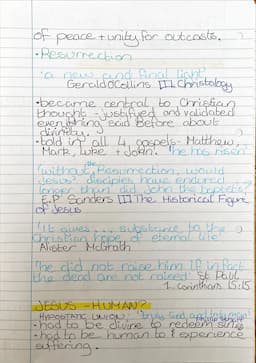 of peace + unity for outcasts.
• Resurrection
'a new and final light'
Gerald O'Collins Christology
• became central to Christian
thought - justified and validated
everything said before about
divinity.
• told in all 4 gospels - Matthew,
Mark, Luke + John. 'he has risen'
'without the Resurrection, would
Jesus' disciples have endured
longer than did John the Baptist's?'
E.P Sanders The Historical Figure
of Jesus
'It gives... substance to the
Christian hope of eternal life'
Alister McGrath
'he did not raise him if in fact
the dead are not raised' St Paul.
1 Corinthians 15:15
JESUS - HUMAN?
HYPOSTATIC UNION: 'truly God, and truly man'
• had to be divine to redeem sins
• had to be human to experience
suffering.